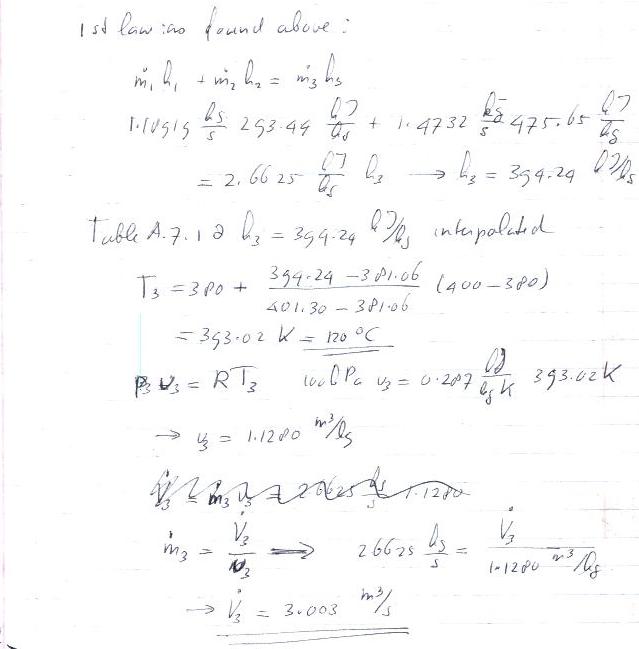 1st law as found above:
ṁ₁ h₁ + ṁ₂ h₂ = ṁ₃ h₃
1.18919 kg/s 293.44 kJ/kg + 1.4732 kg/s 475.65 kJ/kg
= 2.6625 kJ/kg h₃ → h₃ = 394.24 kJ/kg
Table A.7.1 @ h₃ = 394.24 kJ/kg interpolated
T₃ = 380 + (394.24 - 381.06)/(401.30 - 381.06) (400 - 380)
= 393.02 K = 120 °C
P₃ v₃ = RT₃ 100 kPa v₃ = 0.287 kJ/kg K 393.02 K
→ v₃ = 1.1280 m³/kg
V̇₃ = ṁ₃ v₃ = 2.6625 kg/s 1.1280
ṁ₃ = V̇₃/v₃ ⟹ 2.6625 kg/s = V̇₃/(1.1280 m³/kg)
→ V̇₃ = 3.003 m³/s